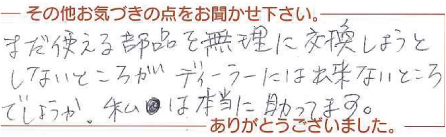 その他お気づきの点をお聞かせ下さい。
まだ使える部品を無理に交換しようと
しないところが ディーラーには出来ないところ
でしょうか。私は本当に助ってます。
ありがとうございました。